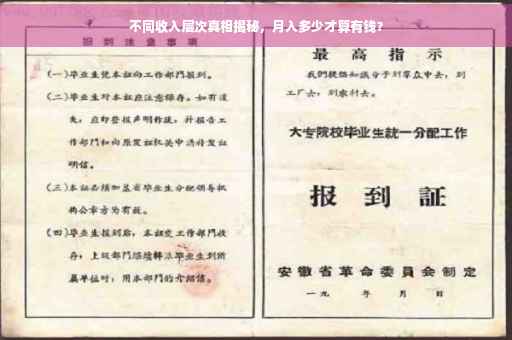 不同收入层次真相揭秘，月入多少才算有钱？
报到注意事项
(一)毕业生凭本证向工作部门报到。
(二)毕业生对本证应注意保存。如有遗
失，应即登报声明作废，并报告工
作部门和向原发证机关申请补发证
明信。
(三)本证必须加盖省毕业生分配领导机
构公章方为有效。
(四)毕业生报到后，本证交工作部门收
存；上级部门继续转派毕业生到所
属单位时，用本部门的介绍信。
最高指示
我们提倡知识分子到群众中去，到
工厂去，到农村去。
大专院校毕业生統一分配工作
报到証
安徽省革命委員会制定
一九 年 月 日